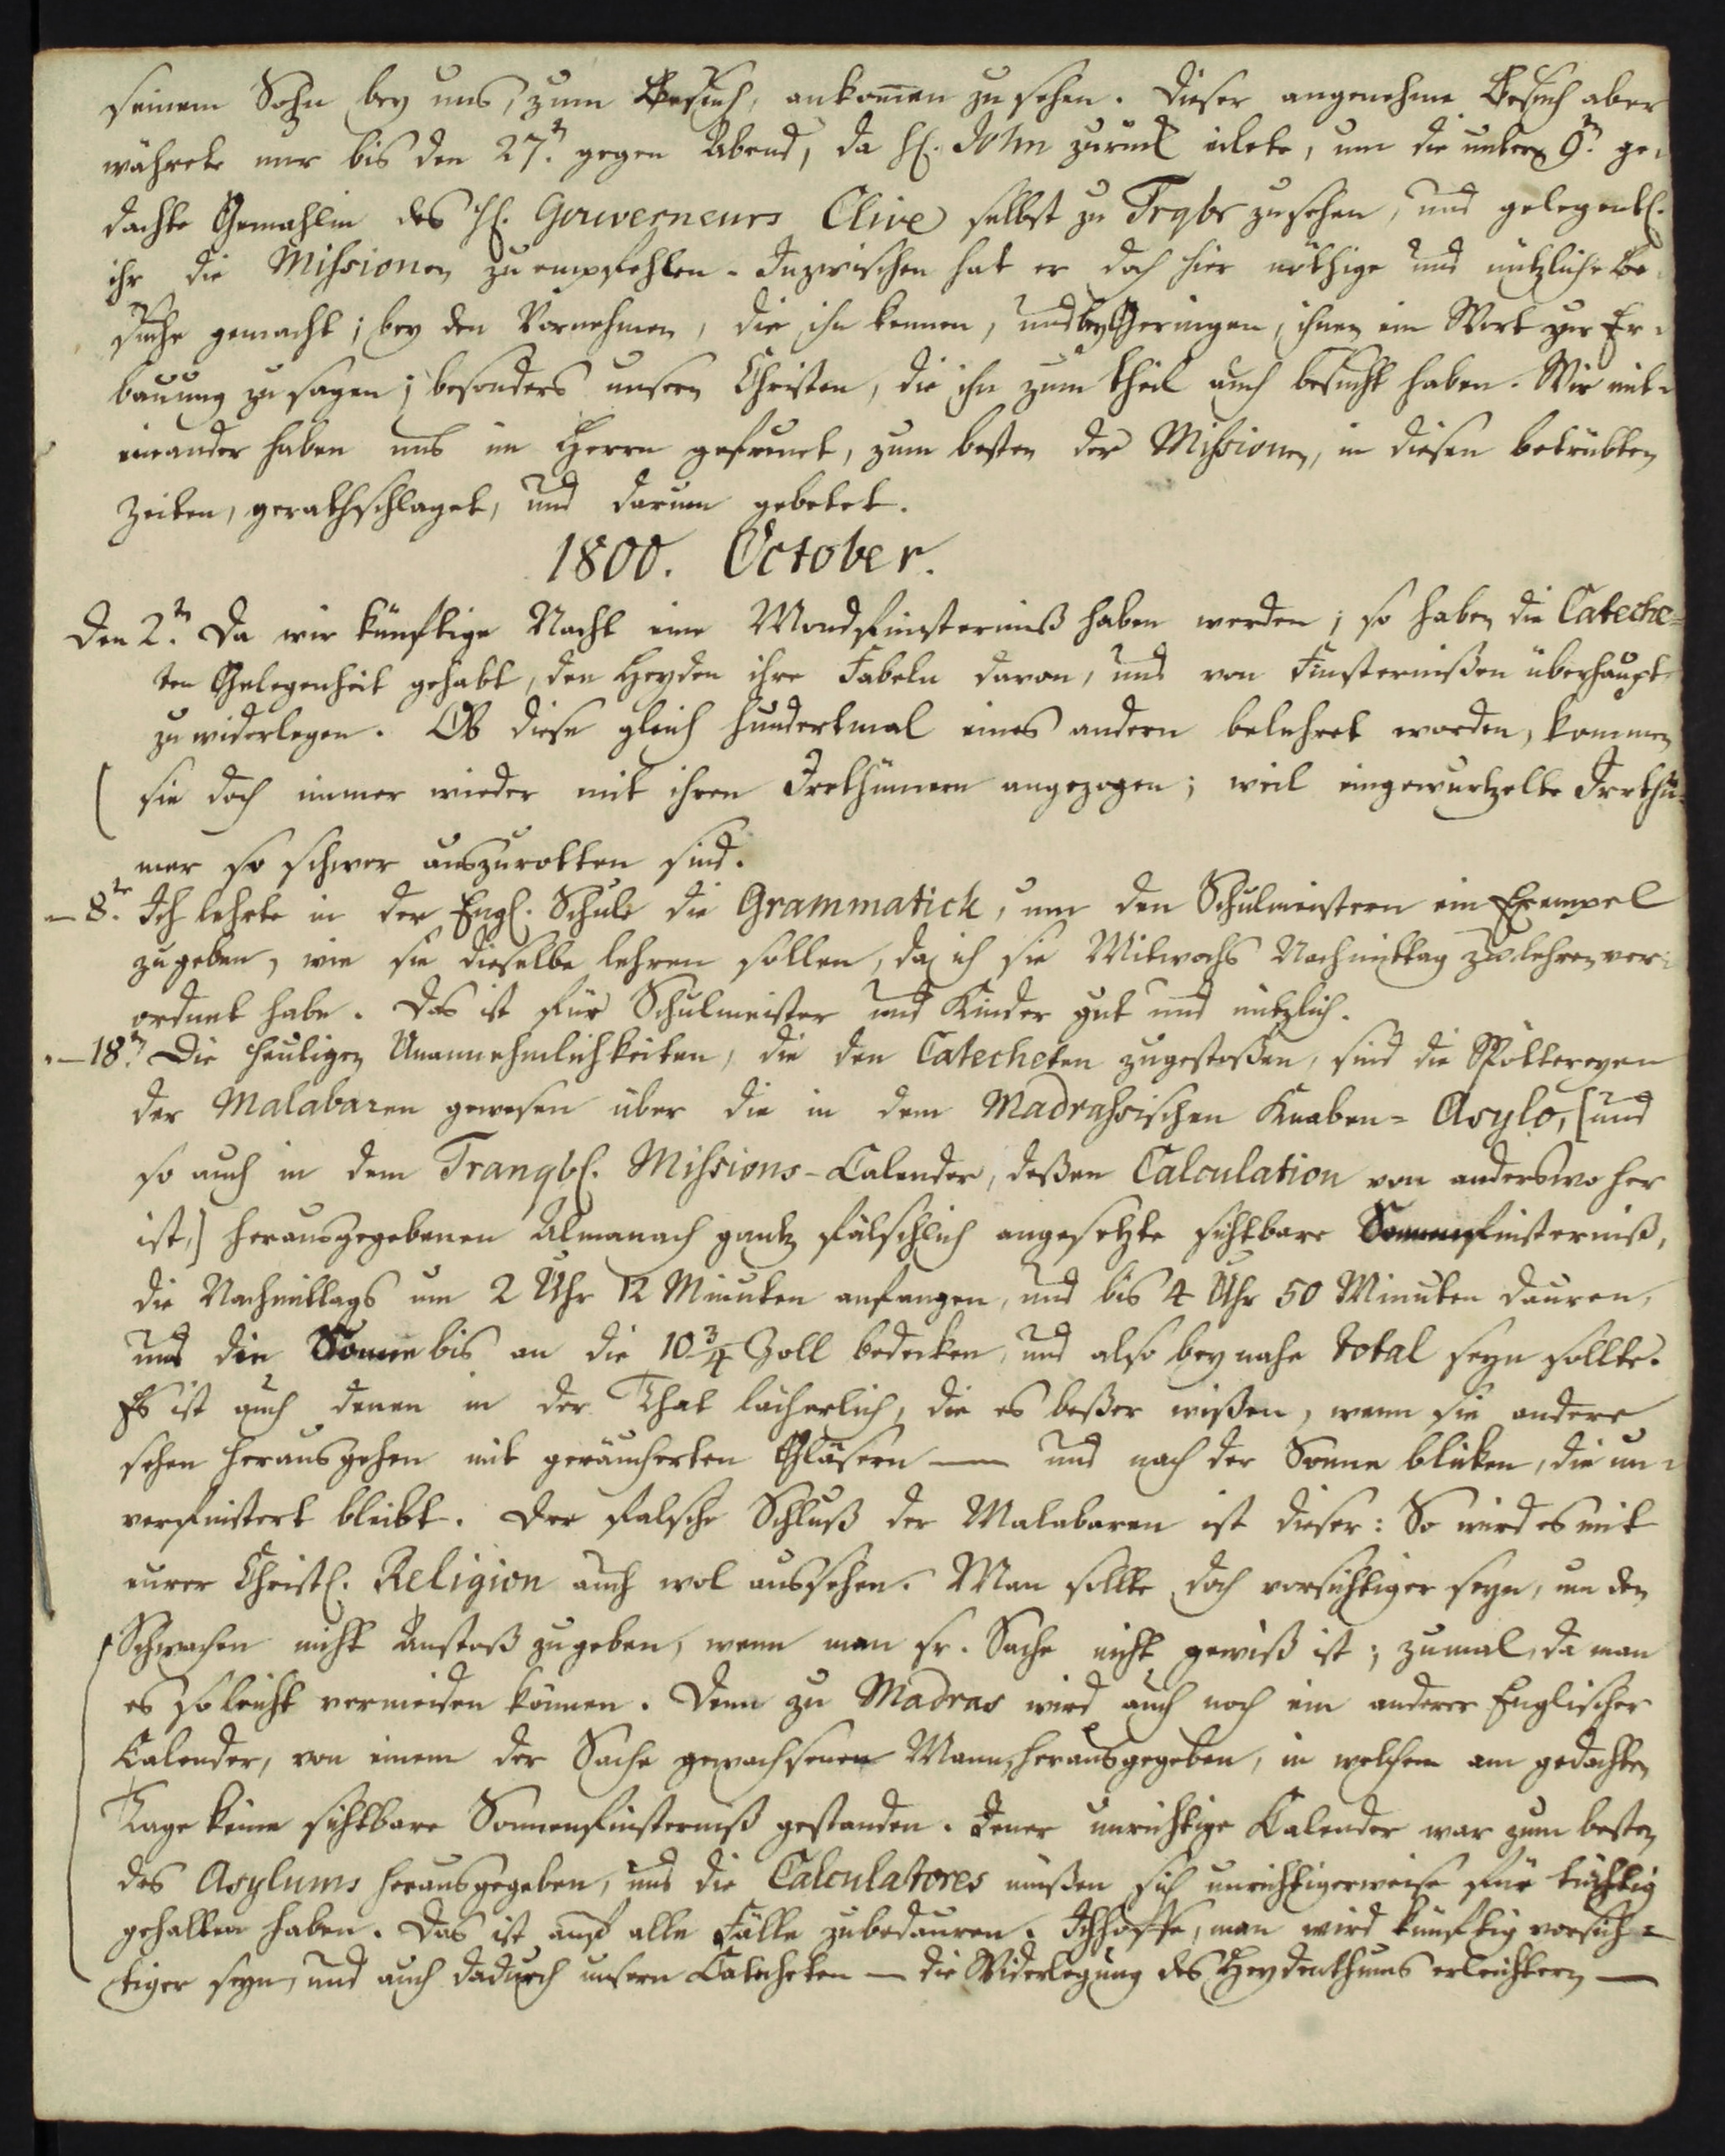 seinem Sohn bey uns, zum Besuch, ankom̄en zu sehen. Dieser angenehme Besuch aber
währete nur bis den 27.n gegen Abend, da H. John zurück eilete, um die unterm 9.n ge-
dachte Gemahlin des H. Gouverneurs Clive selbst zu Trqbr zu sehen, und gelegentl.
ihr die Missionen zu empfehlen. Inzwischen hat er doch hier nöthige und nützliche Be-
suche gemacht; bey den Vornehmen, die ihn kennen, und bey Geringen, ihnen ein Wort zur Er-
bauung zu sagen; besonders unsern Christen, die ihn zum theil auch besucht haben. Wir mit-
einander haben uns im Herrn gefreuet, zum besten der Missionen, in diesen betrübten
Zeiten, gerathschlaget, und darum gebetet.
1800. October.
Den 2.n Da wir künftige Nacht eine Mondfinsterniß haben werden; so haben die Cateche=
ten Gelegenheit gehabt, den Heyden ihre Fabeln davon, und von Finsternißen überhaupt
zu widerlegen. Ob diese gleich hundertmal eines andern belehret worden, kommen
sie doch immer wieder mit ihren Irrthümern angezogen; weil eingewurtzelte Irrthü-
mer so schwer auszurotten sind.
— 8.n Ich lehrte in der Engl. Schule die Grammatick, um den Schulmeistern ein Exempel
zu geben, wie sie dieselbe lehren sollen, da ich sie Mitwochs Nachmittag zu lehren ver-
ordnet habe. Das ist für Schulmeister und Kinder gut und nützlich.
— 18.n Die heutigen Unannehmlichkeiten, die den Catecheten zugestoßen, sind die Spöttereyen
der Malabaren gewesen über die in dem Madrassischen Knaben= Asylo, [und
so auch in dem Tranqbl. Missions-Calender, deßen Calculation von anderswo her
ist,] herausgegebenen Almanach gantz fälschlich angesetzte sichtbare Sonnenfinsterniß,
die Nachmittags um 2 Uhr 12 Minuten anfangen, und bis 4 Uhr 50 Minuten dauren,
und die Sonne bis an die 10 3/4 Zoll bedecken, und also bey nahe total seyn sollte.
Es ist auch denen in der That lächerlich, die es beßer wißen, wenn sie andere
sehen herausgehen mit geräucherten Gläsern — und nach der Sonne blicken, die un-
verfinstert bleibt. Der falsche Schluß der Malabaren ist dieser: So wird es mit
eurer Christl. Religion auch wol aussehen. Man sollte doch vorsichtiger seyn, um den
Schwachen nicht Anstoß zu geben, wenn man sr. Sache nicht gewiß ist; zumal, da man
es so leicht vermeiden können. Denn zu Madras wird auch noch ein anderer Englischer
Calender, von einem der Sache gewachsenen Manne, herausgegeben, in welchem am gedachten
Tage keine sichtbare Sonnenfinsterniß gestanden. Jener unrichtige Kalender war zum besten
des Asylums herausgegeben, und die Calculatores müßen sich unrichtigerweise für tüchtig
gehalten haben. Das ist auf alle Fälle zu bedauren. Ich hoffe, man wird künftig vorsich=
tiger seyn, und auch dadurch unsern Catecheten — die Widerlegung des Heydenthums erleichtern —